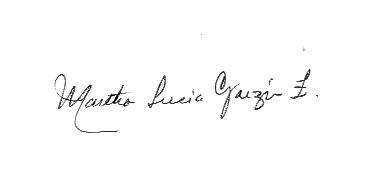 Martha Lucia Garzón Z.